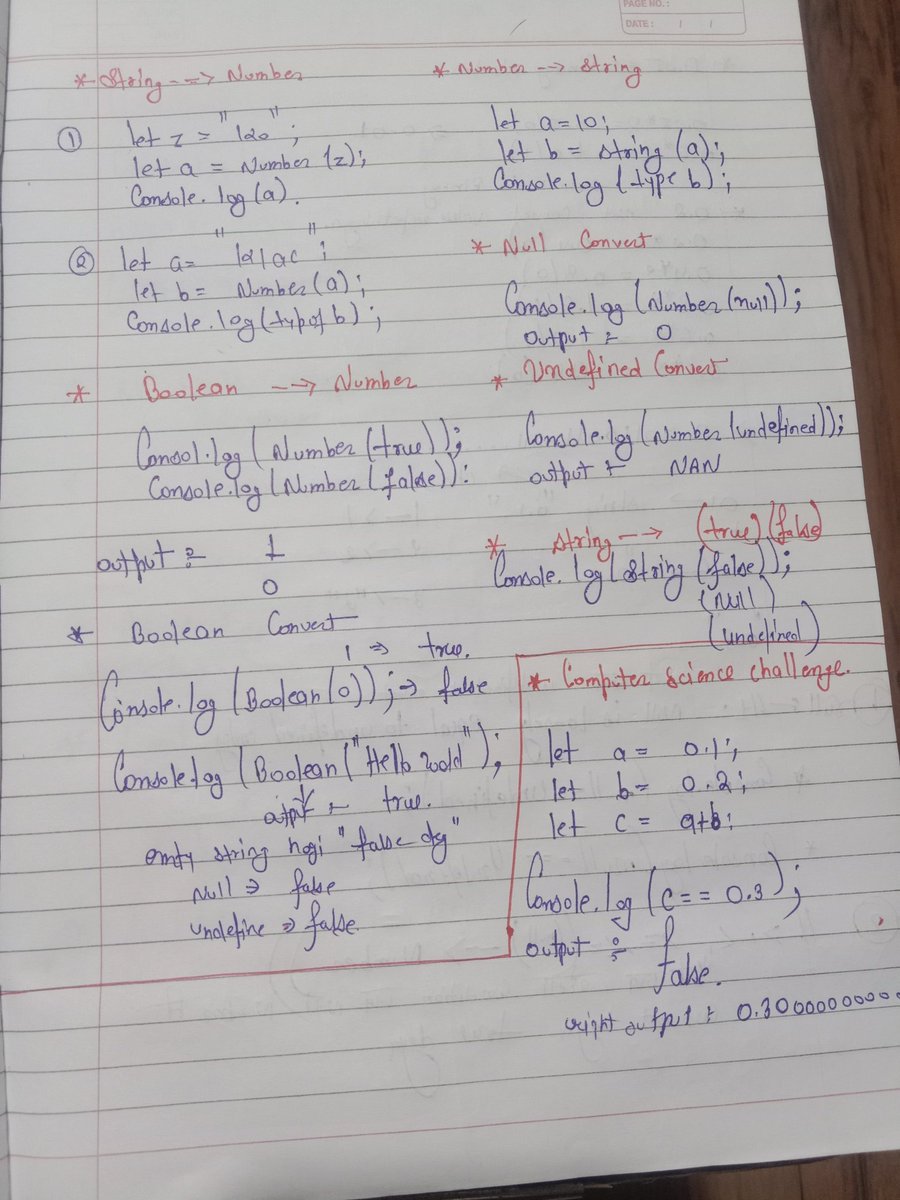 PAGE NO.:
DATE: / /
* String --> Number
① let z = "120";
let a = Number (z);
Console.log(a).
② let a= "121ac";
let b= Number(a);
Console.log(typof b);
* Boolean --> Number
Consol.log(Number(true));
Console.log(Number(false)):
output :- 1
0
* Boolean Convert
1 => true.
Console.log(Boolean(0)); -> false
Console.log(Boolean("Hello
output :- true.
empty string hogi "false
Null => false
undefine => false
* Number --> String
let a=10;
let b = String (a);
Console.log (type b);
* Null Convert
Console.log (Number(null));
output :- 0
* Undefined Convert
Console.log(Number(undefined));
output :- NAN
* String --> (true) (false)
Console.log(String(false));
(Null)
(undefined)
* Computer Science challenge.
let a= 0.1;
let b= 0.2;
let c= a+b;
Console.log(c== 0.3);
output :-
false.
right output : 0.3000000000